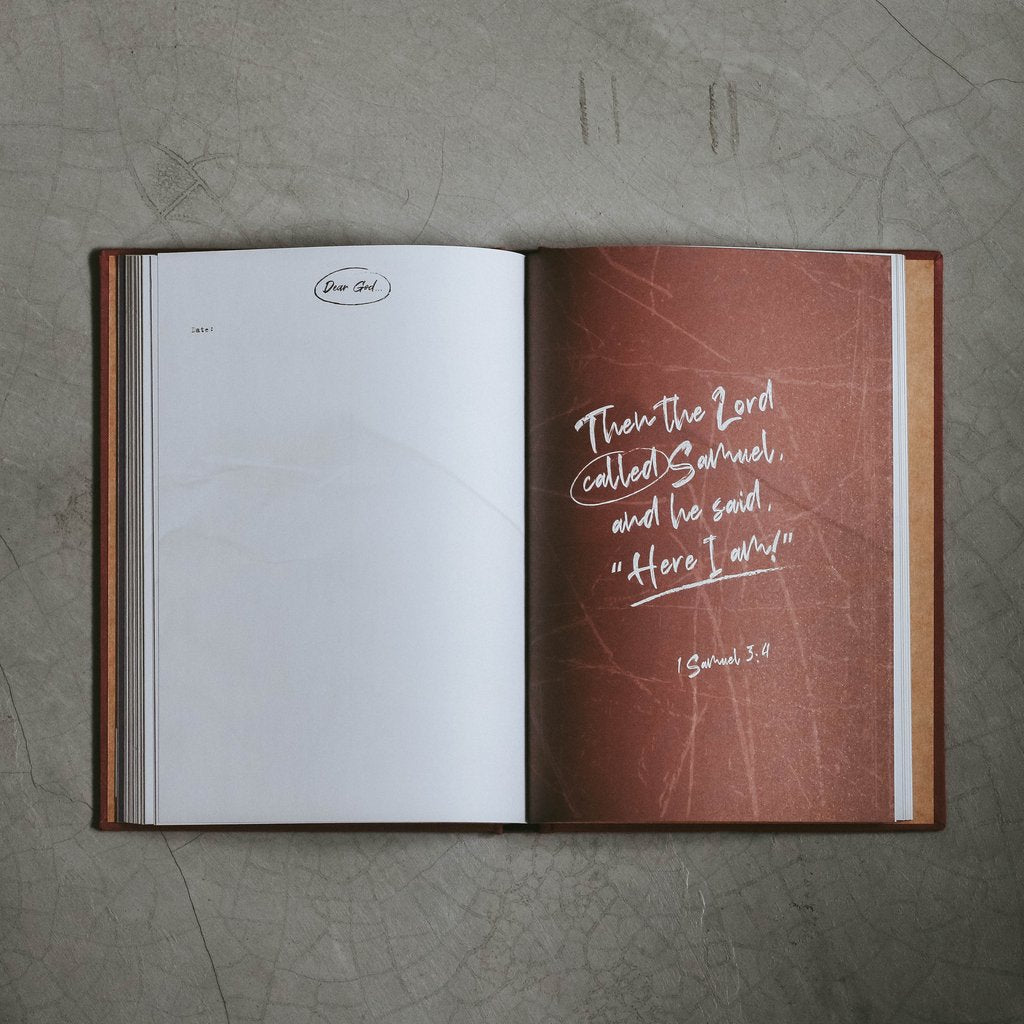 Dear God...
Date:
Then the Lord
called Samuel,
and he said,
"Here I am!"
1 Samuel 3:4